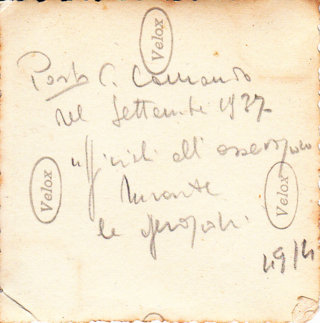 Velox
Posto C. Comando
nel Settembre 1937
ufficiali all' osservatorio
durante
Velox
Velox
le
49/4